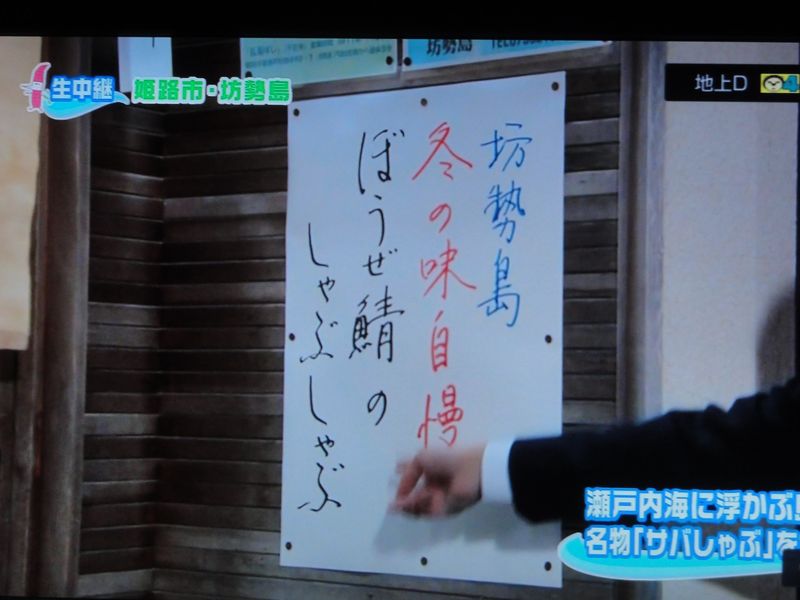 生中継
姫路市・坊勢島
坊勢島
地上D
坊勢島
冬の味自慢
ぼうぜ鯖の
しゃぶしゃぶ
瀬戸内海に浮かぶ!
名物「サバしゃぶ」を